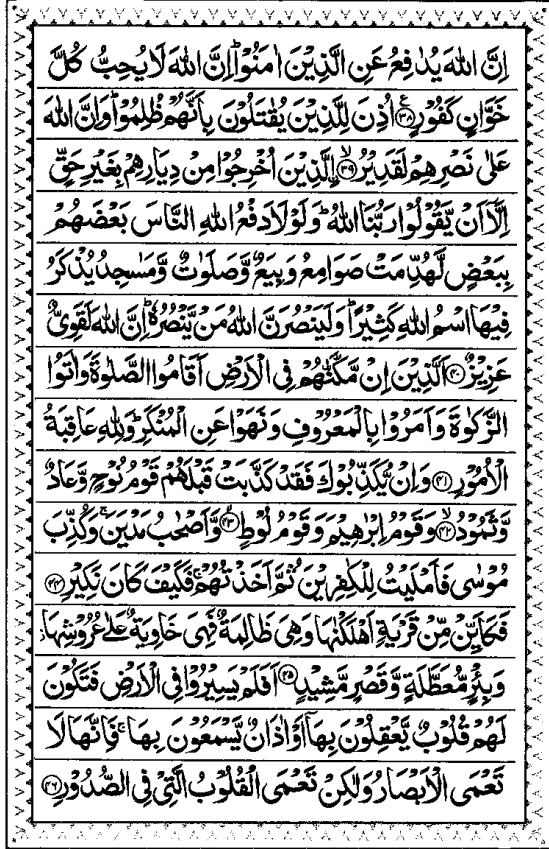 اِنَّ اللّٰهَ یُدٰفِعُ عَنِ الَّذِیْنَ اٰمَنُوْاؕ اِنَّ اللّٰهَ لَا یُحِبُّ كُلَّ
خَوَّانٍ كَفُوْرٍ۠ۧ ﴿۳۸﴾ اُذِنَ لِلَّذِیْنَ یُقٰتَلُوْنَ بِاَنَّهُمْ ظُلِمُوْاؕ وَ اِنَّ اللّٰهَ
عَلٰی نَصْرِهِمْ لَقَدِیْرُۙ ﴿۳۹﴾ اِ۟لَّذِیْنَ اُخْرِجُوْا مِنْ دِیَارِهِمْ بِغَیْرِ حَقٍّ
اِلَّاۤ اَنْ یَّقُوْلُوْا رَبُّنَا اللّٰهُؕ وَ لَوْ لَا دَفْعُ اللّٰهِ النَّاسَ بَعْضَهُمْ
بِبَعْضٍ لَّهُدِّمَتْ صَوَامِعُ وَ بِیَعٌ وَّ صَلَوٰتٌ وَّ مَسٰجِدُ یُذْكَرُ
فِیْهَا اسْمُ اللّٰهِ كَثِیْرًاؕ وَ لَیَنْصُرَنَّ اللّٰهُ مَنْ یَّنْصُرُهٗؕ اِنَّ اللّٰهَ لَقَوِیٌّ
عَزِیْزٌ ﴿۴۰﴾ اَلَّذِیْنَ اِنْ مَّكَّنّٰهُمْ فِی الْاَرْضِ اَقَامُوا الصَّلٰوةَ وَ اٰتَوُا
الزَّكٰوةَ وَ اَمَرُوْا بِالْمَعْرُوْفِ وَ نَهَوْا عَنِ الْمُنْكَرِؕ وَ لِلّٰهِ عَاقِبَةُ
الْاُمُوْرِ ﴿۴۱﴾ وَ اِنْ یُّكَذِّبُوْكَ فَقَدْ كَذَّبَتْ قَبْلَهُمْ قَوْمُ نُوْحٍ وَّ عَادٌ
وَّ ثَمُوْدُۙ ﴿۴۲﴾ وَ قَوْمُ اِبْرٰهِیْمَ وَ قَوْمُ لُوْطٍۙ ﴿۴۳﴾ وَّ اَصْحٰبُ مَدْیَنَۚ وَ كُذِّبَ
مُوْسٰی فَاَمْلَیْتُ لِلْكٰفِرِیْنَ ثُمَّ اَخَذْتُهُمْۚ فَكَیْفَ كَانَ نَكِیْرِ ﴿۴۴﴾
فَكَاَیِّنْ مِّنْ قَرْیَةٍ اَهْلَكْنٰهَا وَ هِیَ ظَالِمَةٌ فَهِیَ خَاوِیَةٌ عَلٰی عُرُوْشِهَا٘
وَ بِئْرٍ مُّعَطَّلَةٍ وَّ قَصْرٍ مَّشِیْدٍ ﴿۴۵﴾ اَفَلَمْ یَسِیْرُوْا فِی الْاَرْضِ فَتَكُوْنَ
لَهُمْ قُلُوْبٌ یَّعْقِلُوْنَ بِهَاۤ اَوْ اٰذَانٌ یَّسْمَعُوْنَ بِهَاۚ فَاِنَّهَا لَا
تَعْمَی الْاَبْصَارُ وَ لٰكِنْ تَعْمَی الْقُلُوْبُ الَّتِیْ فِی الصُّدُوْرِ ﴿۴۶﴾